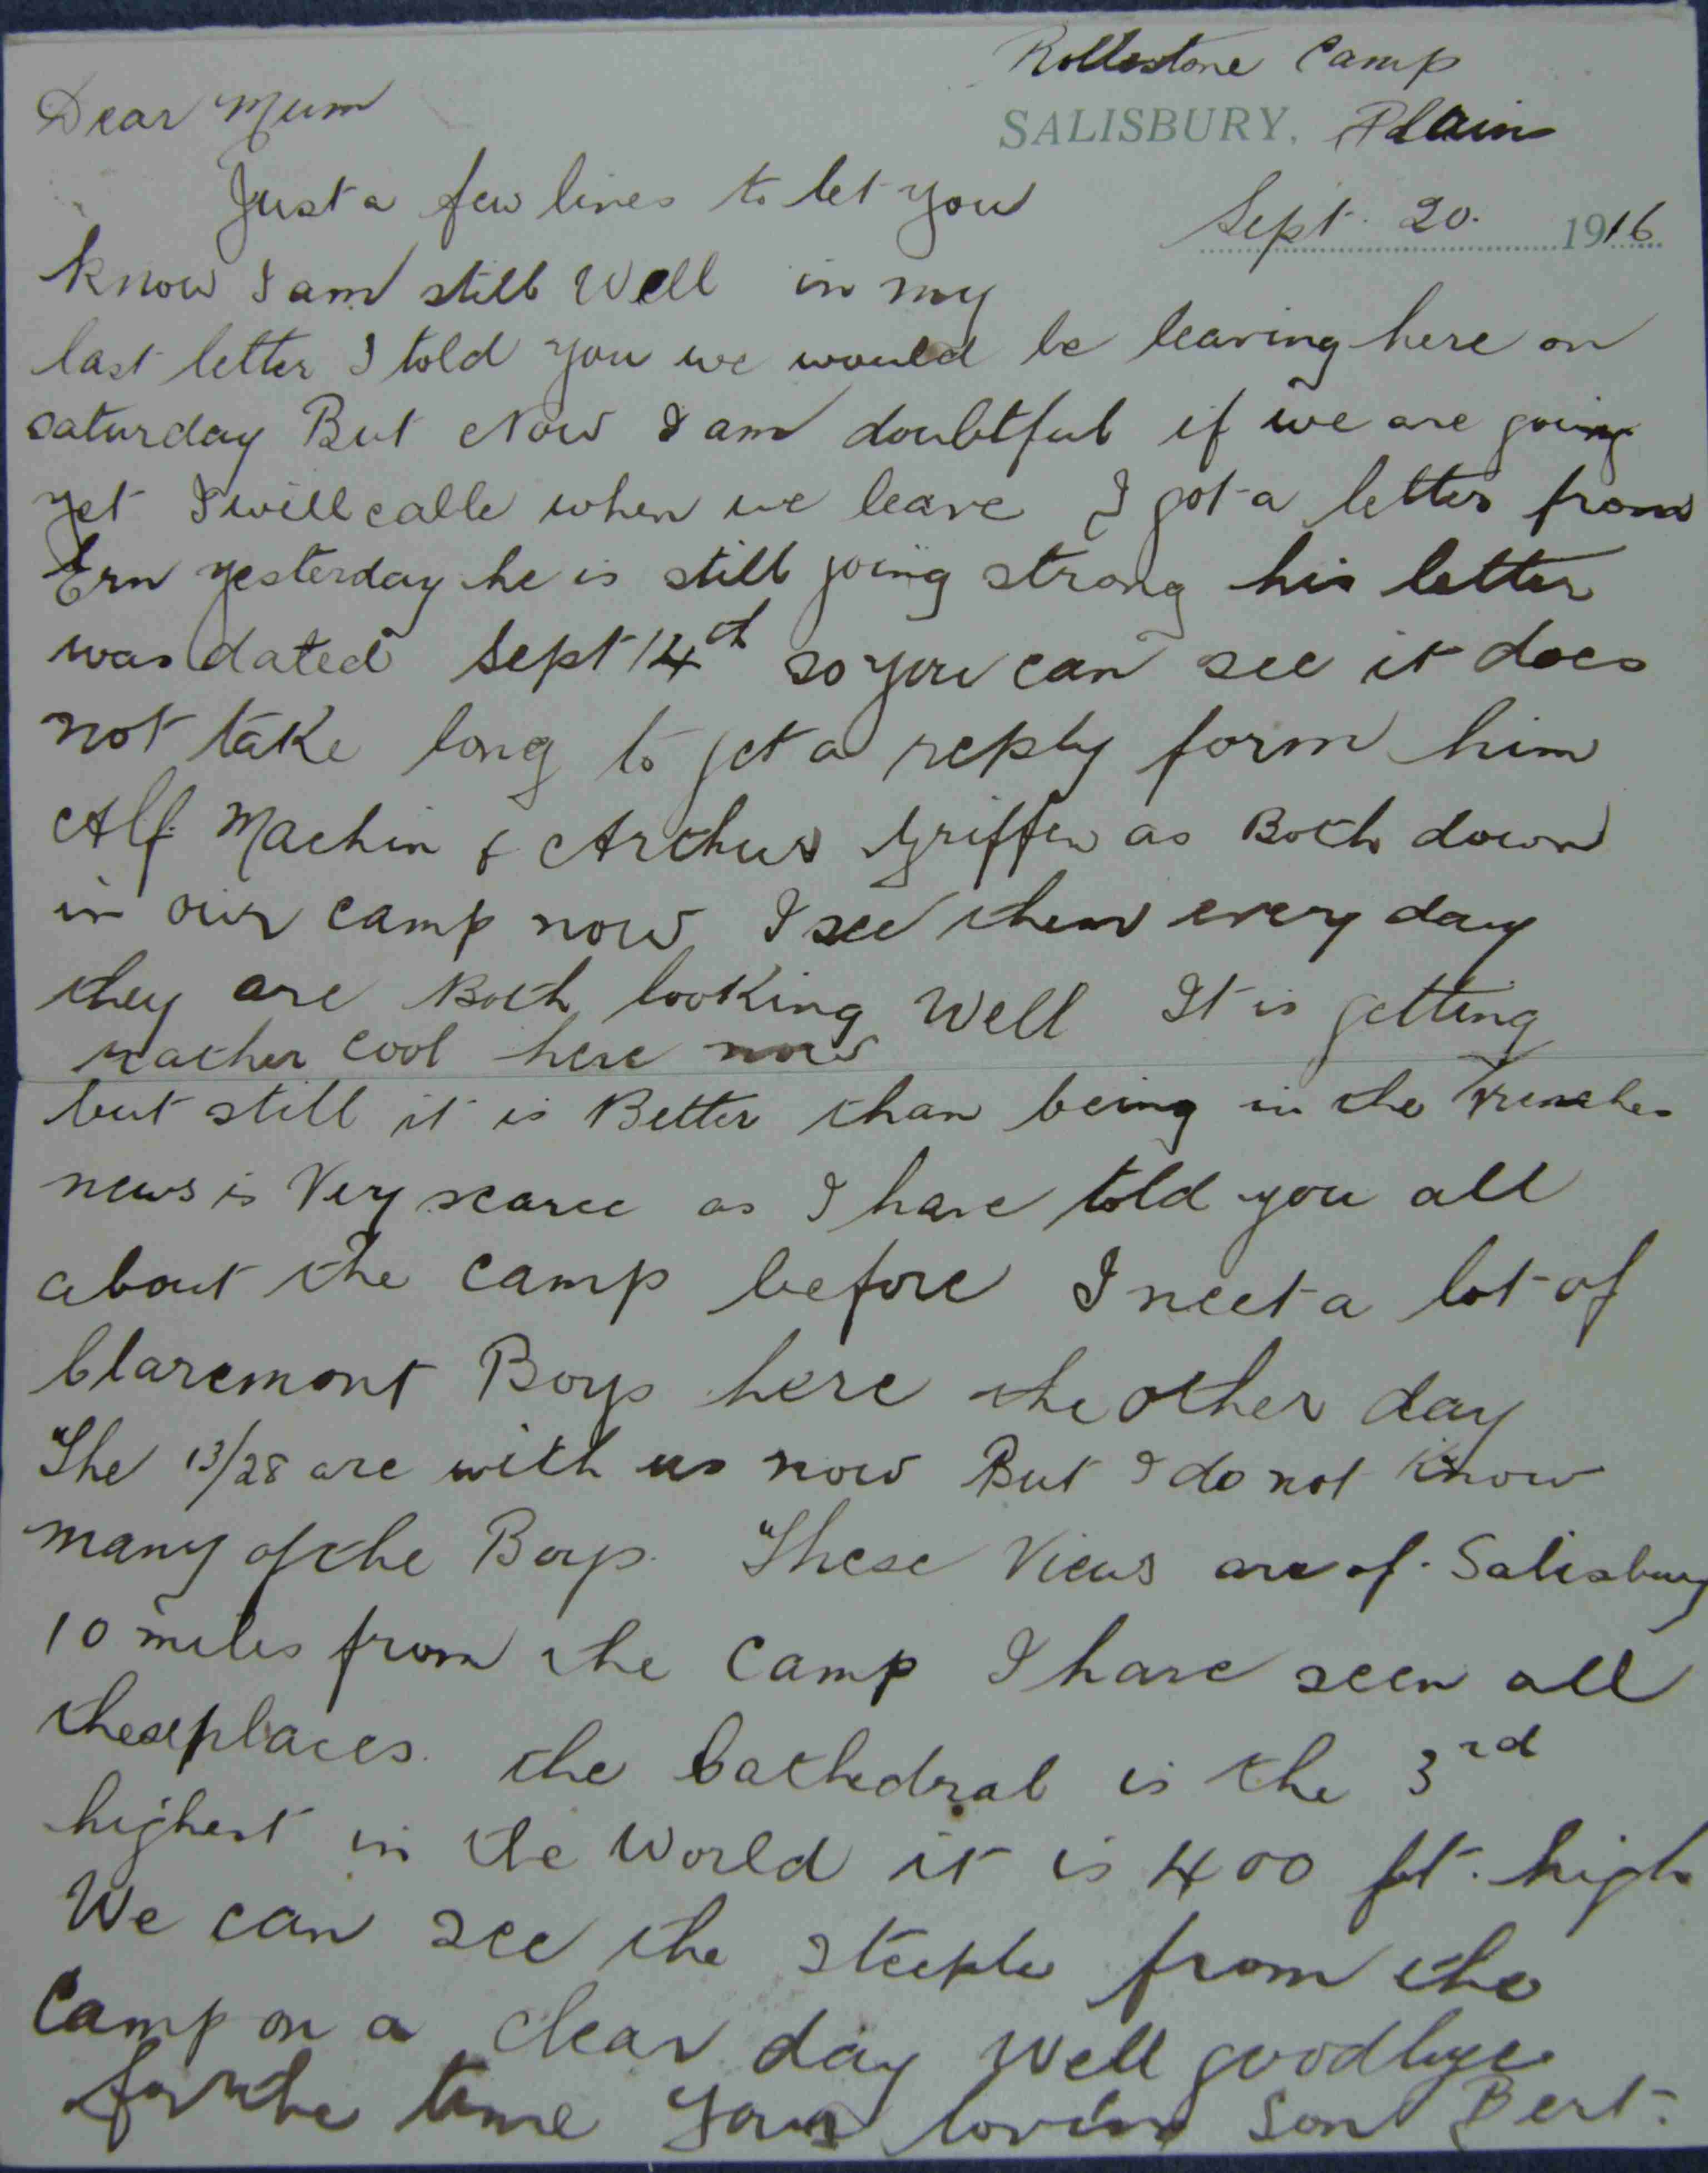 Rollestone Camp
SALISBURY, Plain
Sept. 20. 1916
Dear Mum
Just a few lines to let you
know I am still Well in my
last letter I told you we would be leaving here on
saturday But Now I am doubtful if we are going
yet I will calle when we leave I got a letter from
Ern yesterday he is still going strong his letter
was dated Sept 14th so you can see it does
not take long to get a reply form him
Alf Machin & Arthur Griffen as Both down
in our camp now I see them every day
they are Both looking Well It is getting
rather cool here now
but still it is Better than being in the trenches
news is Very scarce as I have told you all
about the camp before I neet a lot of
Claremont Boys here the other day
The 13/28 are with us now But I do not know
many of the Boys. These Views are of. Salisbury
10 miles from the Camp I have seen all
these places. the Cathedral is the 3rd
highest in the World it is 400 ft. high
We can see the steeple from the
Camp on a clear day Well goodbye
for the time Your loving Son Bert.